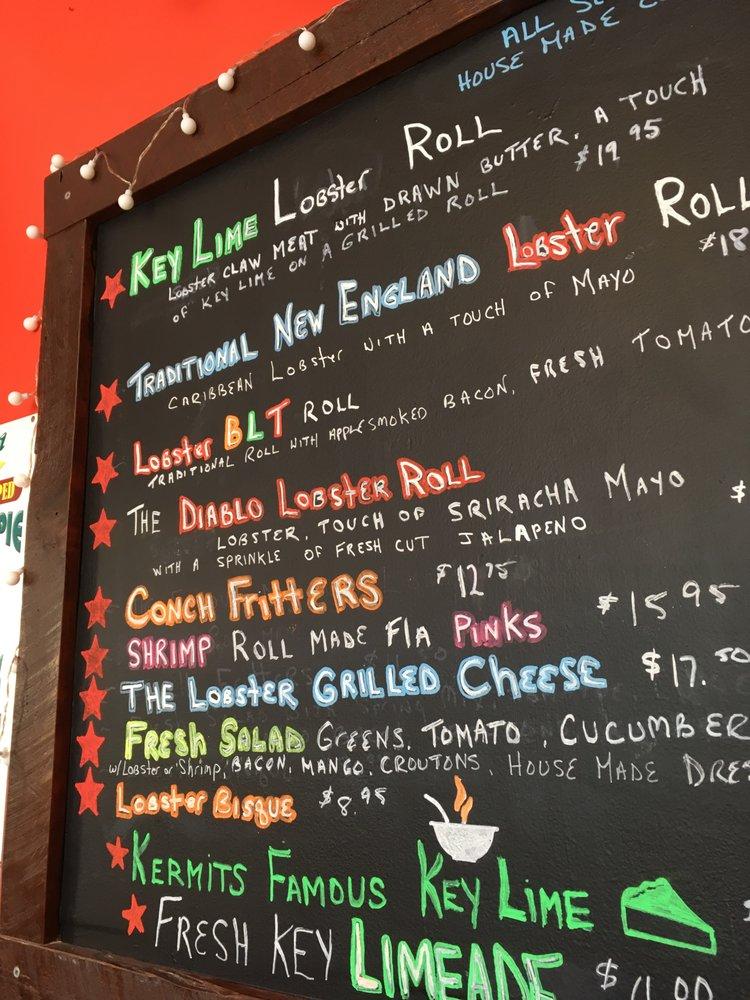 ALL
HOUSE MADE
KEY LIME Lobster ROLL
LOBSTER CLAW MEAT WITH DRAWN BUTTER, A TOUCH
OF KEY LIME ON A GRILLED ROLL $19 95
TRADITIONAL NEW ENGLAND Lobster ROLL
CARIBBEAN LOBSTER WITH A TOUCH OF MAYO $18
Lobster BLT ROLL
TRADITIONAL ROLL WITH APPLE SMOKED BACON, FRESH TOMATO
THE DIABLO LOBSTER ROLL
LOBSTER, TOUCH OF SRIRACHA MAYO $
WITH A SPRINKLE OF FRESH CUT JALAPENO
CONCH FRITTERS $12 75
SHRIMP ROLL MADE FLA PINKS $15 95
THE LOBSTER GRILLED CHEESE $17. 50
FRESH SALAD GREENS, TOMATO, CUCUMBER
w/Lobster or Shrimp, BACON, MANGO, CROUTONS, HOUSE MADE DRE
Lobster Bisque $8.95
KERMITS FAMOUS KEY LIME
FRESH KEY LIMEADE $
PIE